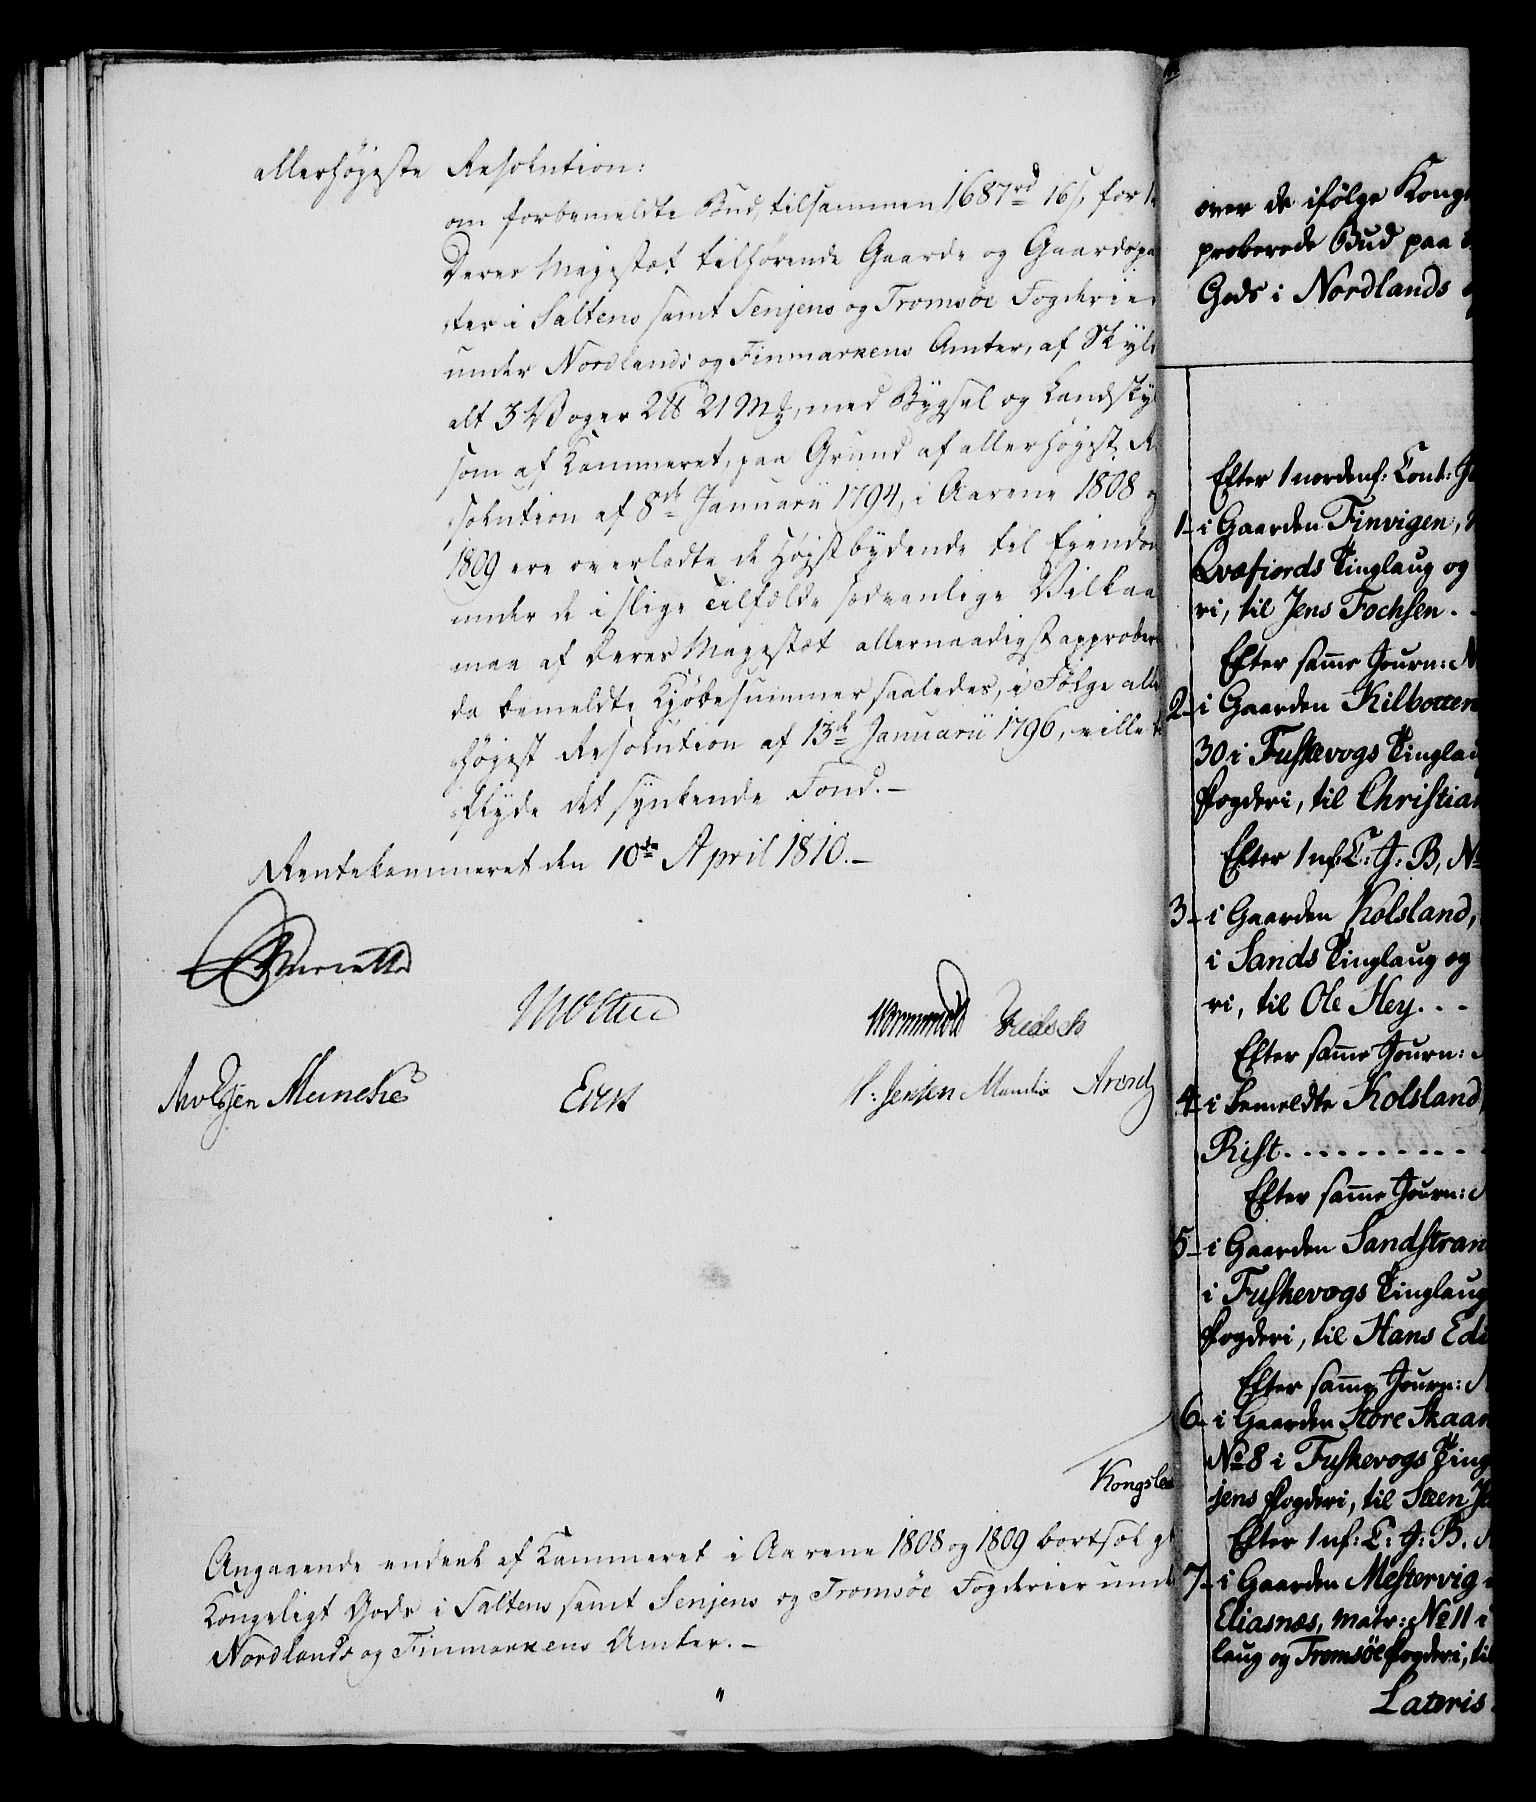 allerhøyeste Resolution:
om forbemeldte Bud, tilsammen 1687 rd 16 s, for
Deres Majestæt tilhørende Gaarde og Gaardspa
ter i Saltens samt Senjens og Tromsøe Fogderier
under Nordlands og Finmarkens Amter, af Skyld
alt 3 Woger 2 ℔ 21 Mk, med Bygsel og Landskyl
som af Kammeret, paa Grund af allerhøyest Re
solution af 8de Januarii 1794, i Aarene 1808 o
1809 ere overladte de Høystbydende til Eiendom
under de i slige Tilfælde sædvanlige Vilkaa
maa af Deres Majestæt allernaadigst approbere
da bemeldte Kjøbesummer saaledes, i Følge alle
høyest Resolution af 13de Januarii 1796, ville
flyde det synkende Fond.—
Rentekammeret den 10de April 1810.—
Wormskiold
Meincke
P: Jensen Arentz
Kongsle
Angaaende endeel af Kammeret i Aarene 1808 og 1809 bortsolgt
Kongeligt Gods i Saltens samt Senjens og Tromsøe Fogderier unde
Nordlands og Finmarkens Amter.—
over de ifølge Kong
proberede Bud paa
Gods i Nordlands
Efter 1 nordenf: Cont: J
1- i Gaarden Finvigen,
Qvæfiords Tinglaug og
ri, til Jens Fochsen . -
Efter samme Journ: N
2- i Gaarden Kilbotten
30 i Fuskevogs Tinglau
Fogderi, til Christian
Efter 1 nf: C: J: B, No
3- i Gaarden Kolsland,
i Sands Tinglaug og
ri, til Ole Hey. . -
Efter samme Journ:
4- i bemeldte Kolsland
Rist . . . . . . . . . .
Efter samme Journ:
5- i Gaarden Sandstran
i Fuskevogs Tinglaug
Fogderi, til Hans Ed
Efter samme Journ:
6- i Gaarden Store Skaan
No 8 i Fuskevogs Ting
jens Fogderi, til Steen
Efter 1 nf: C: J: B.
7- i Gaarden Mestervig
Eliasnæs, matr: No 11
laug og Tromsøe Fogderi, til
Lateris